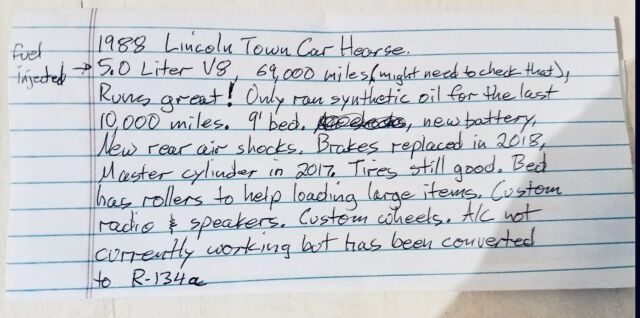 1988 Lincoln Town Car Hearse.
fuel injected → 5.0 Liter V8, 69,000 miles (might need to check that),
Runs great! Only ran synthetic oil for the last
10,000 miles. 9' bed. , new battery,
New rear air shocks. Brakes replaced in 2018,
Master cylinder in 2017. Tires still good. Bed
has rollers to help loading large items. Custom
radio & speakers. Custom wheels. A/C not
currently working but has been converted
to R-134a